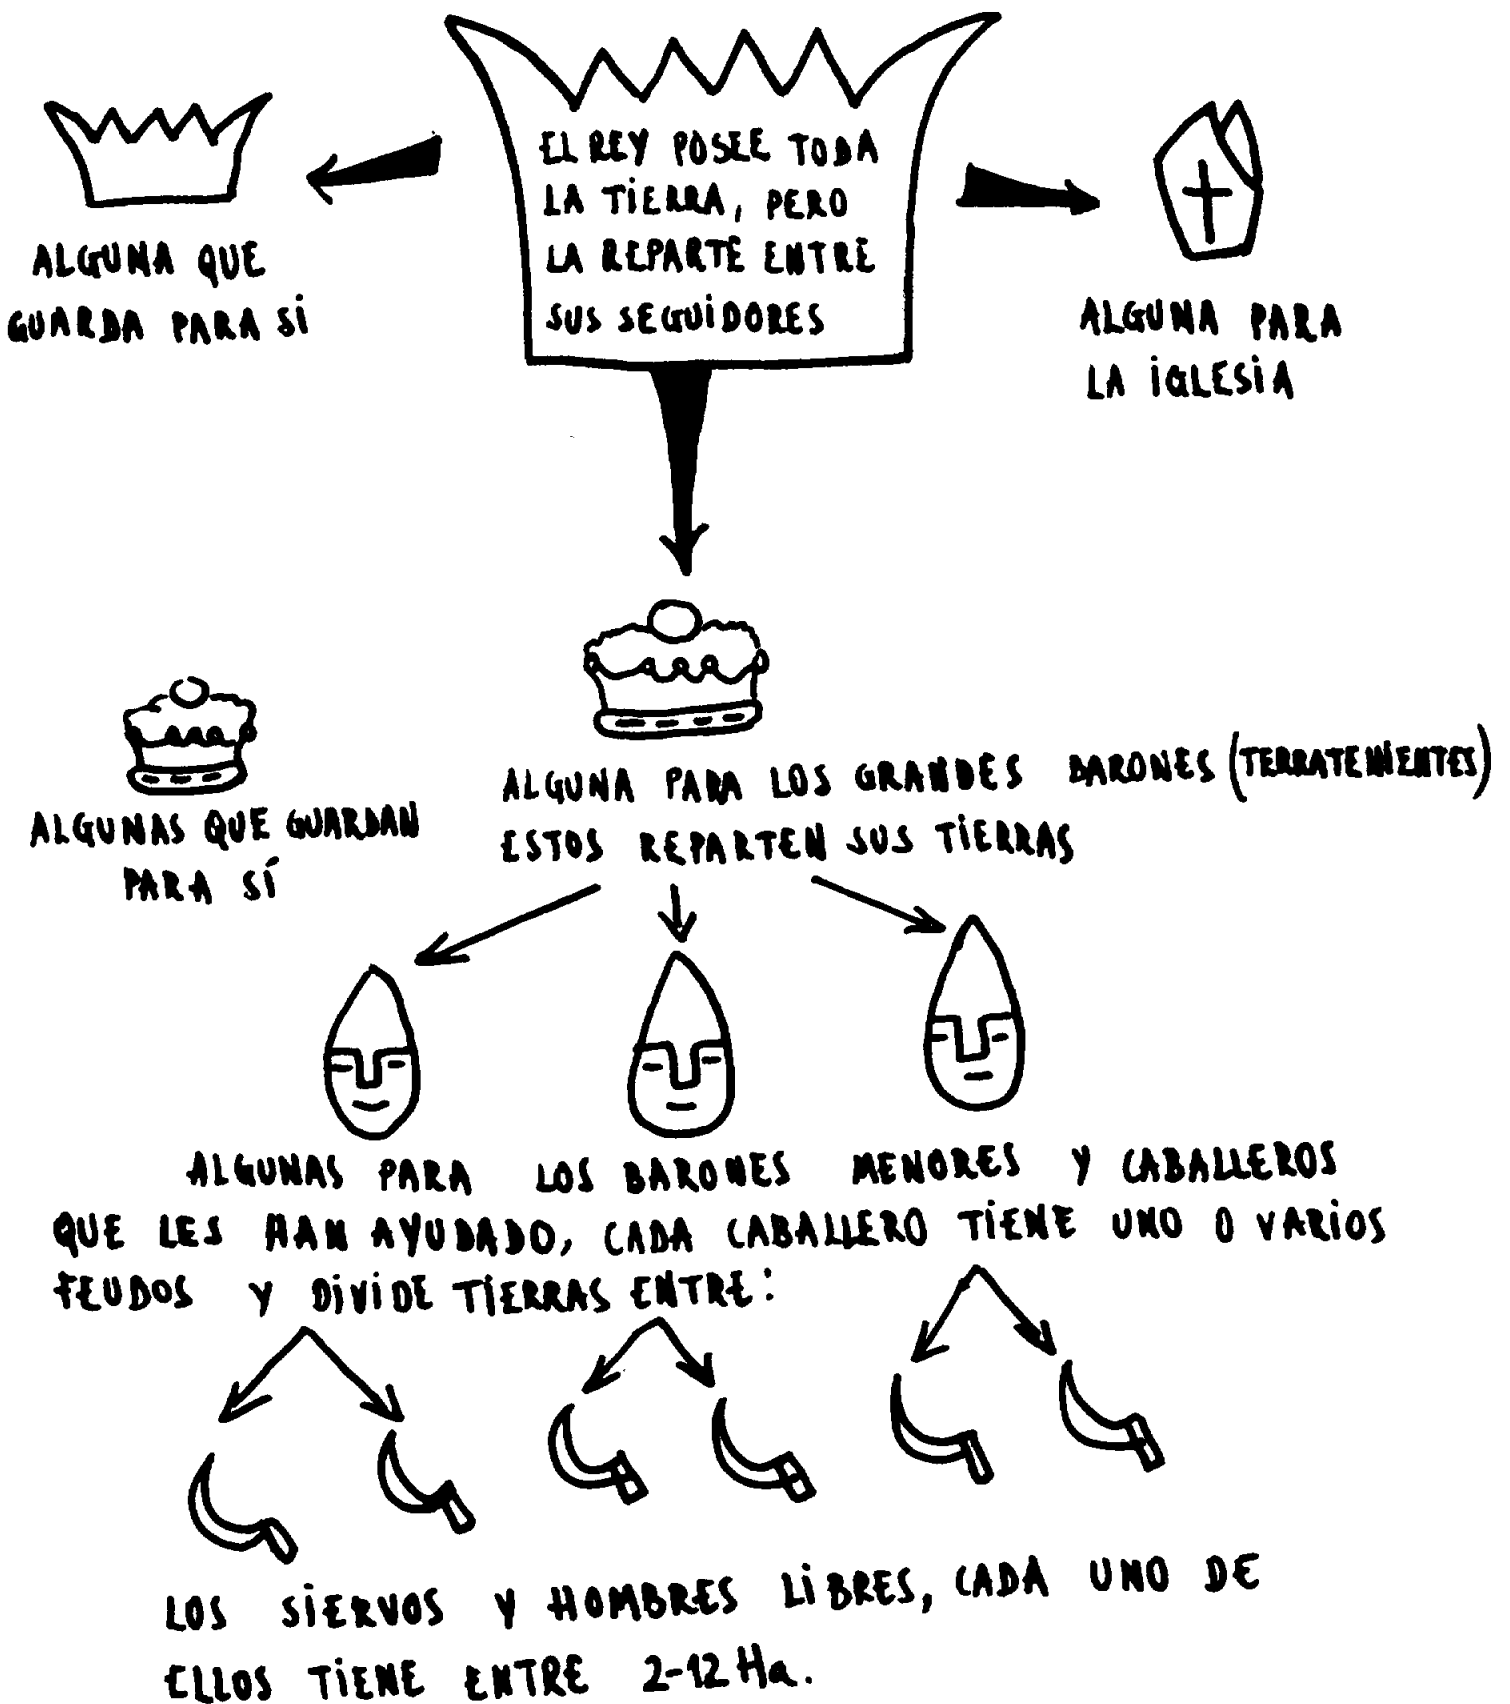 EL REY POSEE TODA
LA TIERRA, PERO
LA REPARTE ENTRE
SUS SEGUIDORES
ALGUNA QUE
GUARDA PARA SÍ
ALGUNA PARA
LA IGLESIA
ALGUNAS QUE GUARDAN
PARA SÍ
ALGUNA PARA LOS GRANDES BARONES (TERRATENIENTES)
ESTOS REPARTEN SUS TIERRAS
ALGUNAS PARA LOS BARONES MENORES Y CABALLEROS
QUE LES HAN AYUDADO, CADA CABALLERO TIENE UNO O VARIOS
FEUDOS Y DIVIDE TIERRAS ENTRE:
LOS SIERVOS Y HOMBRES LIBRES, CADA UNO DE
ELLOS TIENE ENTRE 2-12 Ha.